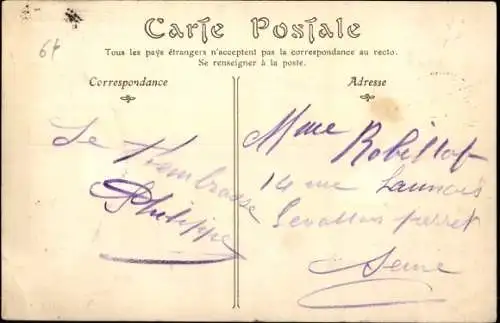 6f
Carte Postale
Tous les pays étrangers n'acceptent pas la correspondance au recto.
Se renseigner à la poste.
Correspondance
Je t'embrasse
Philippe
Adresse
Mme Robillot
14 rue Launois
Levallois perret
Seine